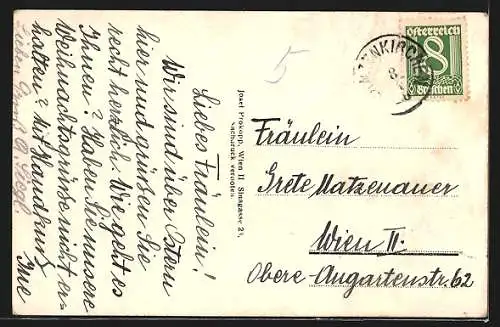 Liebes Fräulein!
Wir sind über Ostern
hier und grüßen Sie
recht herzlich. Wie geht es
Ihnen? Haben Sie unsere
Weihnachtsgrüße nicht er-
halten? Mit Handkuss
Ihre
Lieben Gruß
Josef Prokopp, Wien II. Sinagasse 23,
Nachdruck verboten.
5
Österreich
8
Groschen
NKIRCH
8
Fräulein
Grete Matzenauer
Wien II.
Obere-Augartenstr. 62